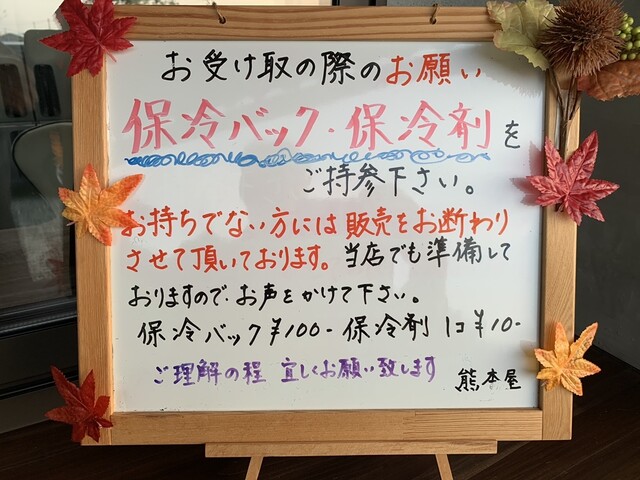 お受け取の際のお願い
保冷バック・保冷剤を
ご持参下さい。
お持ちでない方には販売をお断わり
させて頂いております。当店でも準備して
おりますので、お声をかけて下さい。
保冷バック¥100- 保冷剤 1コ¥10-
ご理解の程 宜しくお願い致します
熊本屋